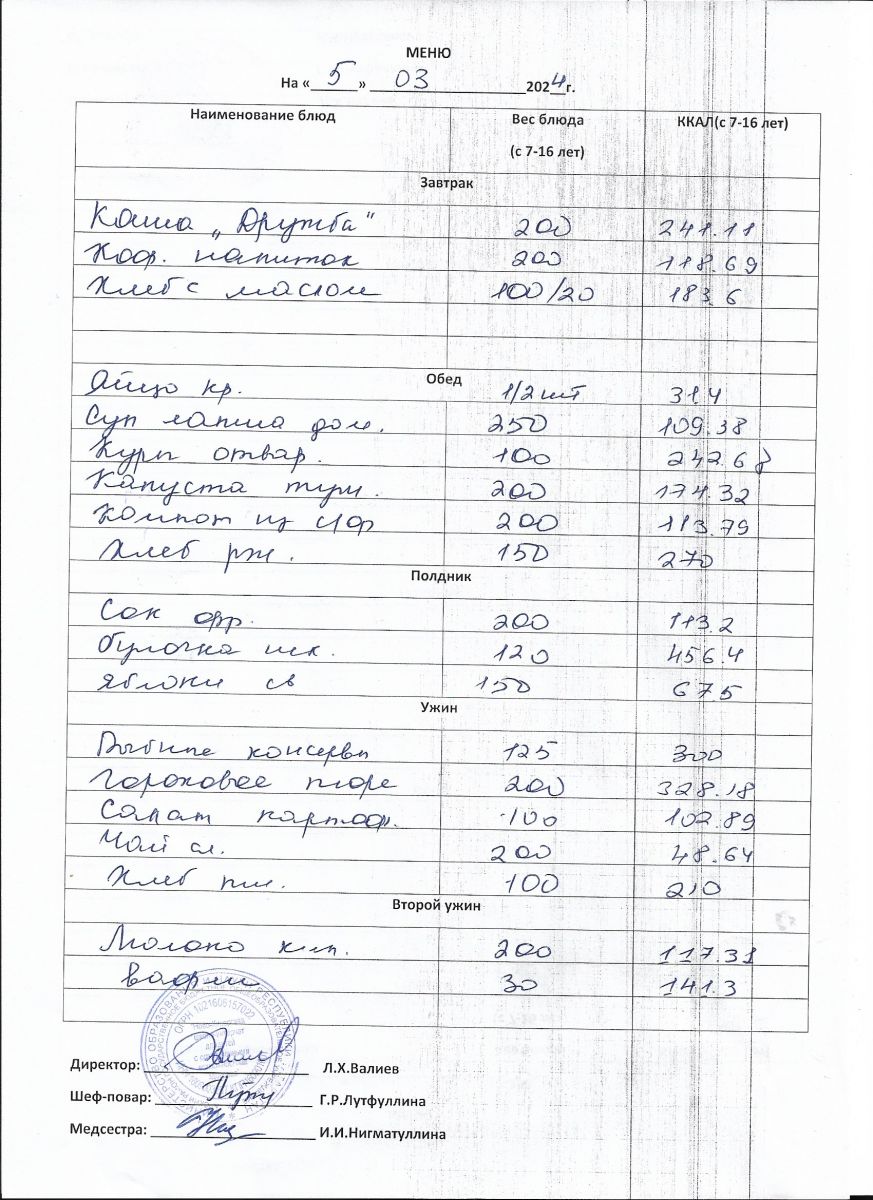 МЕНЮ
На « 5 » 03 2024г.
Наименование блюд Вес блюда (с 7-16 лет) ККАЛ(с 7-16 лет)
Завтрак
Каша „Дружба" 200 241.11
Коф. напиток 200 118.69
Хлеб с маслом 100/20 183.6
Обед
Яйцо кр. 1/2 шт 31.4
Суп лапша дом. 250 109.38
Куры отвар. 100 242.68
Капуста туш. 200 174.32
Компот из с/ф 200 113.79
Хлеб рж. 150 270
Полдник
Сок фр. 200 113.2
Булочка шк. 120 456.4
Яблоки св 150 67.5
Ужин
консервы 125 300
Гороховое пюре 200 328.18
Салат картоф. 100 102.89
Чай сл. 200 48.64
Хлеб пш. 100 210
Второй ужин
Молоко кип. 200 117.31
Вафли 30 141.3
ОГРН 1021606157022
Директор: Л.Х.Валиев
Шеф-повар: Г.Р.Лутфуллина
Медсестра: И.И.Нигматуллина